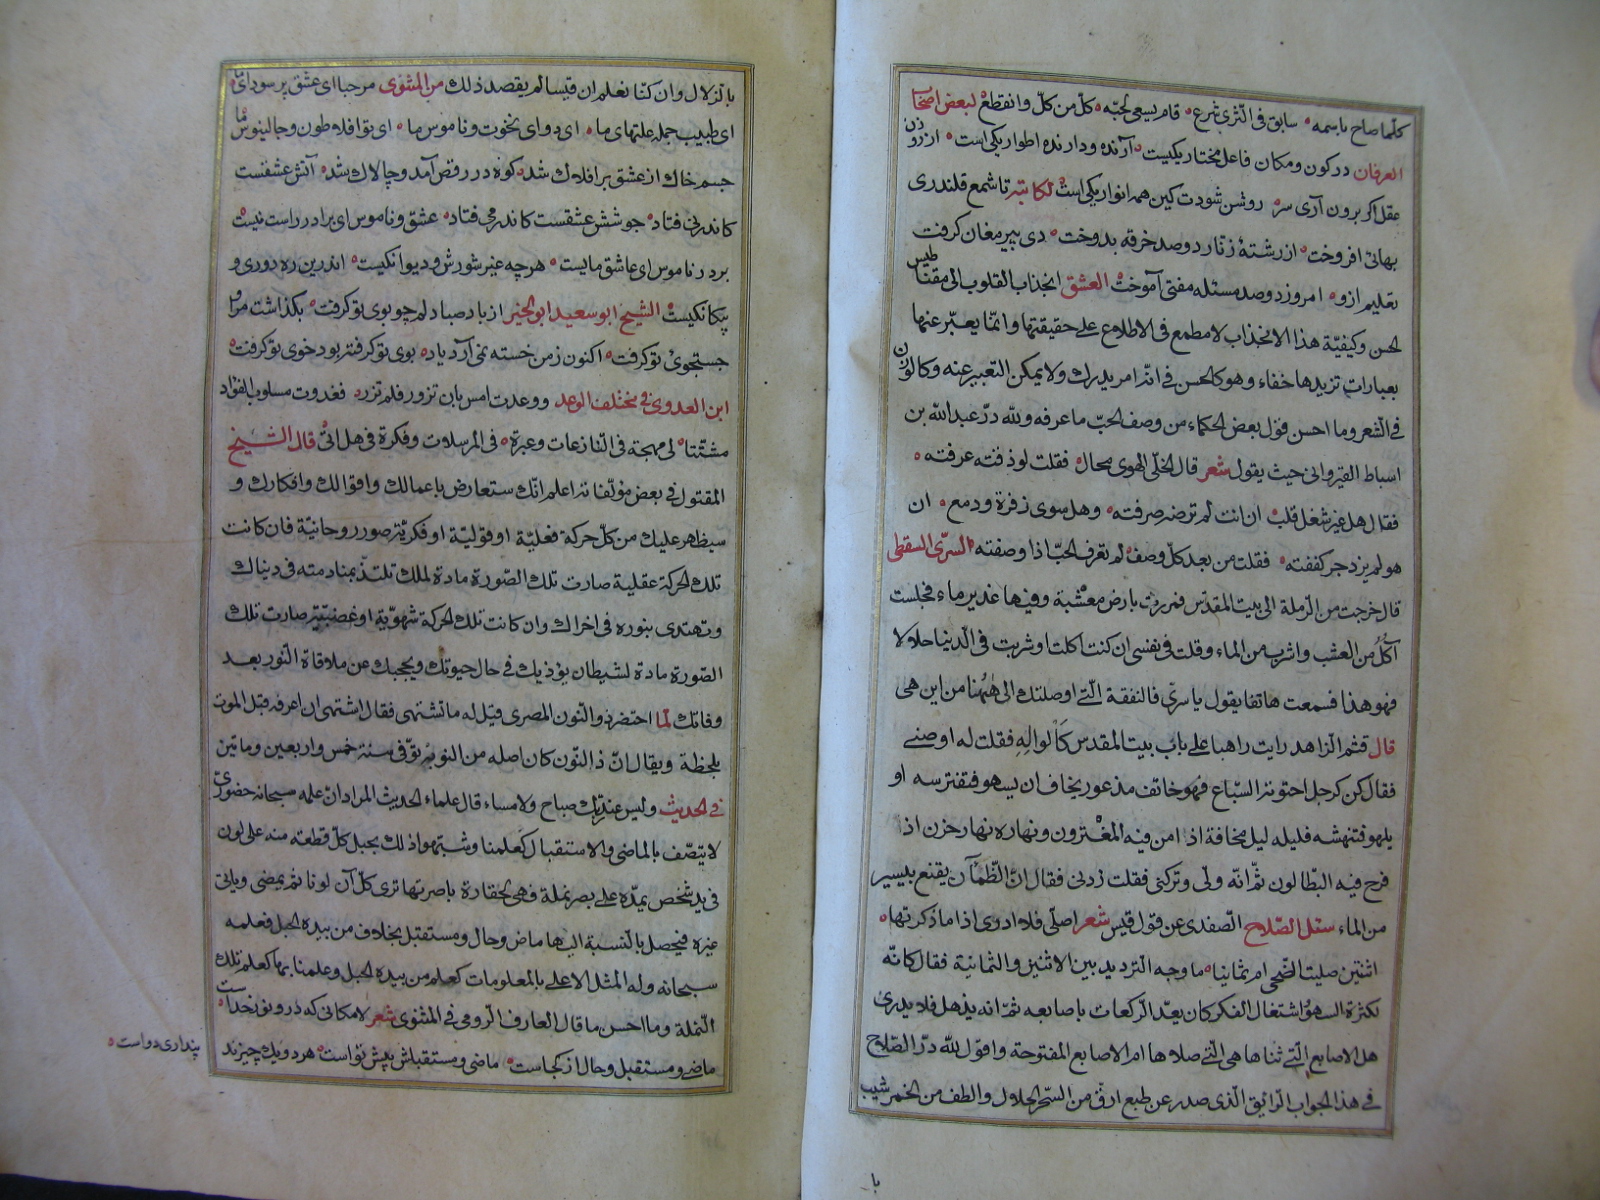 كلما صاح باسمه سابق فى الثرى شرع قام يسعى لحبه كل من كل وانقطع لبعض اصحا
العرفان در كون ومكان فاعل مختار يكيست آرنده ودارنده اطوار يكى است از روزن
عقل اكر برون آرى سر روشن شودت كين همه انوار يكى است لكاتبه تا شمع قلندرى
بهائى افروخت از رشتهٔ زنار دوصد خرقه بدوخت دى پير مغان كرفت
تعليم ازو امروز دوصد مسئله مفتى آموخت العشق انجذاب القلوب الى مقناطيس
لحسن وكيفيّة هذا الانجذاب لا مطمع فى الاطلاع على حقيقتها وانّما يعبّر عنها
بعبارات تزيدها خفاء وهو كالحسن فى انّه امر يدرك ولا يمكن التّعبير عنه وكالوزن
فى الشعر وما احسن قول بعض الحكماء من وصف الحبّ ما عرفه ولله درّ عبد الله بن
اسباط القيروانى حيث يقول شعر قال الخلّى الهوى محال فقلت لو ذقته عرفته
فقال هل غير شغل قلب ان انت لم ترضه صرفته وهل سوى زفرة ودمع ان
هو لم يزدجر كففته فقلت من بعد كلّ وصف لم تعرف الحبّ اذا وصفته السرّى السقطى
قال خرجت من الرّملة الى بيت المقدّس فمررت بارض معشبة وفيها غدير ماء فجلست
آكل من العشب واشرب من الماء وقلت فى نفسى ان كنت اكلت او شربت فى الدنيا حلالا
فهو هذا فسمعت هاتفا يقول يا سرّى فالنفقة الّتى اوصلتك الى ههنا من اين هى
قال قثم الزاهد رايت راهبا على باب بيت المقدس كالواله فقلت له اوصنى
فقال كن كرجل احتوته السّباع فهو خائف مذعور يخاف ان يسهو فتفترسه او
يلهو فتنهشه فليله ليل مخافة اذا امن فيه المغترون ونهاره نهار حزن اذا
فرح فيه البطالون ثمّ انّه ولّى وتركنى فقلت زدنى فقال انّ الظّمآن يقنع بيسير
من الماء سئل الصّلاح الصّفدى عن قول قيس شعر اصلّى فلا ادرى اذا ما ذكرتها
اثنتين صليت الضّحى ام ثمانيا ما وجه التّرديد بين الاثنين والثمانية فقال كانّه
لكثرة السهو واشتغال الفكر كان يعدّ الركعات باصابعه ثمّ انه يذهل فلا يدرى
هل الاصابع الّتى ثناها هى الّتى صلاها ام الاصابع المفتوحة واقول لله درّ الصّلاح
فى هذا الجواب الرّائق الّذى صدر عن طبع ارقّ من السّحر الحلال والطف من الخمر شيب
با
بالزّلال وان كنّا نعلم ان قيسا لم يقصد ذلك من المثنوى مرحبا اى عشق پر سوداى ما
اى طبيب جمله علتهاى ما اى دواى نخوت وناموس ما اى تو افلاطون وجالينوس ما
جسم خاك از عشق بر افلاك شد كوه در رقص آمد وچالاك شد آتش عشقست
كاندر نى فتاد جوشش عشقست كاندر مى فتاد عشق وناموس اى برادر راست نيست
بر در ناموس اى عاشق مايست هرچه غير شورش وديوانكيست اندرين ره دورى و
بيكانكيست الشيخ ابو سعيد ابو الخير از باد صبا دلم چو بوى تو كرفت بكذاشت مرا و
جستجوى تو كرفت اكنون زمن خسته نمى آرد ياد بوى تو كرفته بود خوى تو كرفت
ابن العدوى فى مختلف الوعد ووعدت امس بان تزور فلم تزر فغدوت مسلوب الفؤاد
مشتّتا لى مهجة فى النّازعات وعبرة فى المرسلات وفكرة فى هل اتى قال الشيخ
المقتول فى بعض مؤلّفاته اعلم انّك ستعارض باعمالك واقوالك وافكارك و
سيظهر عليك من كلّ حركة فعليّة او قوليّة او فكريّة صور روحانيّة فان كانت
تلك الحركة عقلية صارت تلك الصّورة مادة لملك تلتذّ بمنادمته فى دنياك
وتهتدى بنوره فى اخراك وان كانت تلك الحركة شهويّة او غضبيّة صارت تلك
الصّورة مادة لشيطان يؤذيك فى حال حيوتك ويحجبك عن ملاقاة النّور بعد
وفاتك لمّا احتضر ذو النّون المصرى قيل له ما تشتهى فقال اشتهى ان اعرفه قبل الموت
بلحظة ويقال انّ ذا النّون كان اصله من النوبة توفّى سنة خمس واربعين ومأتين
فى الحديث وليس عند ربّك صباح ولا مساء قال علماء الحديث المراد انّ علمه سبحانه حضورىّ
لا يتصّف بالماضى والاستقبال كعلمنا وشبّهوا ذلك بحبل كلّ قطعة منه على لون
فى يد شخص يمدّه على بصر نملة فهى لحقارة باصرتها ترى كلّ آن لونا ثم يمضى وياتى
غيره فيحصل بالنّسبة اليها ماض وحال ومستقبل بخلاف من بيده الحبل فعلمه
سبحانه وله المثل الاعلى بالمعلومات كعلم من بيده الحبل وعلمنا بها كعلم تلك
النّملة وما احسن ما قال العارف الرّومى فى المثنوى شعر لامكانى كه درو نور خداست
ماضى ومستقبل وحال از كجاست ماضى ومستقبلش پيش تو است هردو يك چيزند
پندارى دواست